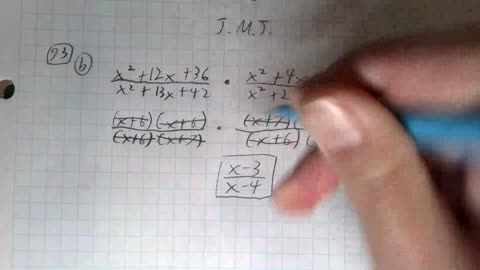 J.M.J.
93 b
x² + 12x + 36 / x² + 13x + 42 · x² + 4x / x² + 2
(x+6)(x+6) / (x+6)(x+7) · (x+7) / (x+6)
x-3 / x-4